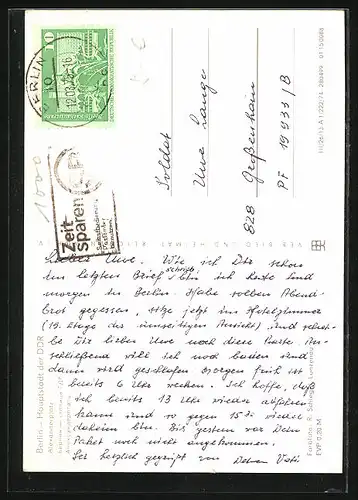 BERLIN
12.03.76-16
10
1000
Zeit
sparen
Soldat
Uwe Lange
828 Großenhain
PF 19933/B
VEB BILD UND HEIMAT REICHENBACH
Berlin – Hauptstadt der DDR
EVP 0,20 M
Lieber Uwe. Wie ich Dir schon
im letzten Brief schrieb bin ich heute und
morgen in Berlin. Habe soeben Abend-
brot gegessen, sitze jetzt im Hotelzimmer
(19. Etage der umseitigen Ansicht) und schrei-
be Dir lieber Uwe noch diese Karte. An-
schließend will ich noch baden und
dann wird geschlafen morgen früh ist
bereits 6 Uhr wecken. Ich hoffe, daß
ich bereits 13 Uhr wieder abfahren
kann und so gegen 15 wieder
daheim bin. Bis gestern war Dein
Paket noch nicht angekommen.
Sei herzlich gegrüßt von Deinem Vati